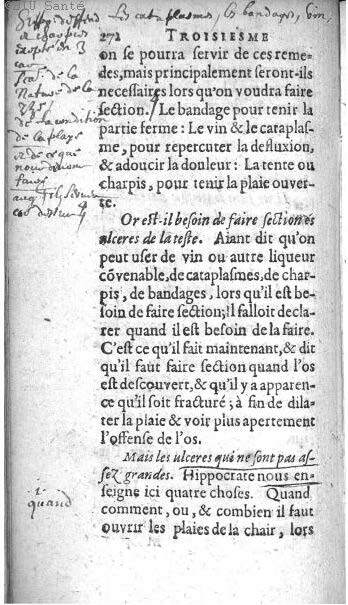 BIU Santé
Les cataplasmes, les bandages, vin,
272 TROISIESME
on se pourra servir de ces reme-
des, mais principalement seront-ils
necessaires lors qu'on voudra faire
section. / Le bandage pour tenir la
partie ferme: Le vin & le cataplas-
me, pour repercuter la defluxion,
& adoucir la douleur: La tente ou
charpis, pour tenir la plaie ouver-
te.
Or est-il besoin de faire section és
ulceres de la teste. Aiant dit qu'on
peut user de vin ou autre liqueur
cõvenable, de cataplasmes, de char-
pis, de bandages, lors qu'il est be-
soin de faire section; Il falloit decla-
rer quand il est besoin de la faire.
C'est ce qu'il fait maintenant, & dit
qu'il faut faire section quand l'os
est descouvert, & qu'il y a apparen-
ce qu'il soit fracturé; à fin de dila-
ter la plaie & voir plus apertement
l'offense de l'os.
Mais les ulceres qui ne sont pas as-
sez grandes. Hippocrate nous en-
seigne ici quatre choses. Quand
comment, ou, & combien il faut
ouvrir les plaies de la chair, lors
de la
Nature de la
de la condition
de la playe
1.
quand